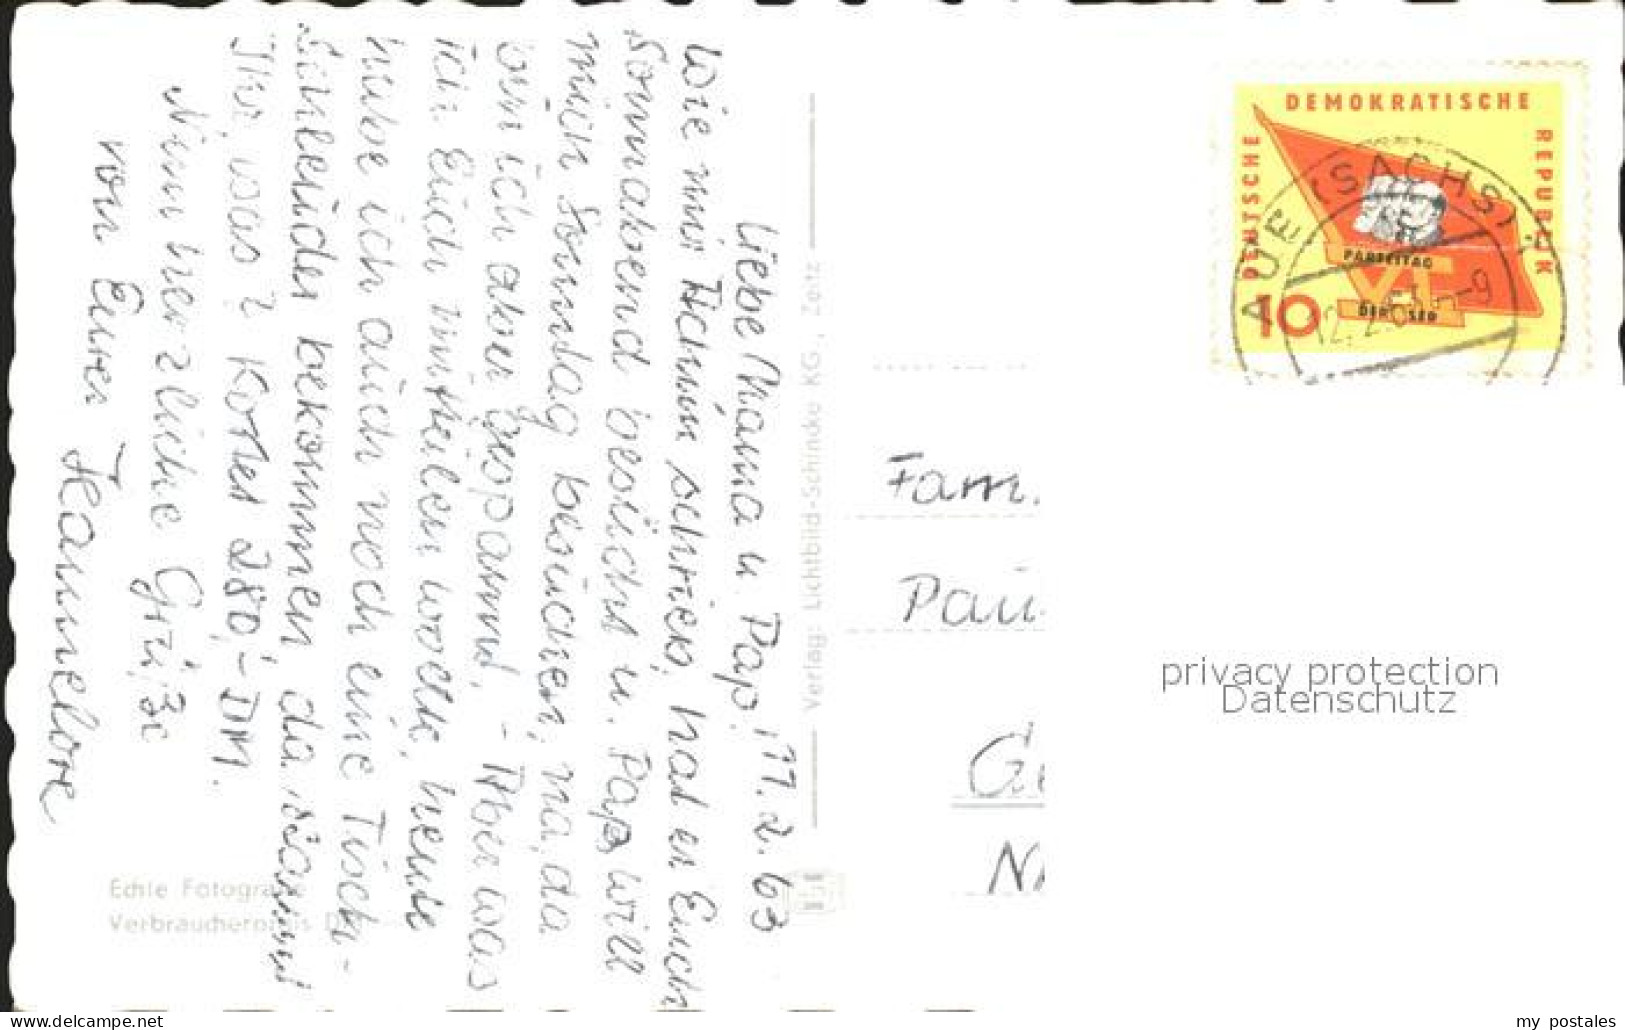 Liebe Mama u. Pap! 11.2.63
Wie mir Achim schrieb, hat er Euch
Sonnabend besucht u. Papa will
mich Sonntag besuchen, na, da
bin ich aber gespannt. - Aber was
ich Euch mitteilen wollte, heute
habe ich auch noch eine Tisch-
da staunt
Ihr, was? Kostet 280,- DM.
Nun herzliche Grüße
von Eurer Hannelore
Verlag: Lichtbild-Schincke KG., Zeitz
Echte Fotografie
Verbraucherpreis
DEUTSCHE DEMOKRATISCHE REPUBLIK
VI. PARTEITAG
DER SED
10
AUE (SACHS)
12.2.63
Fam.
Pau
G
N
privacy protection
Datenschutz
www.delcampe.net
my_postales